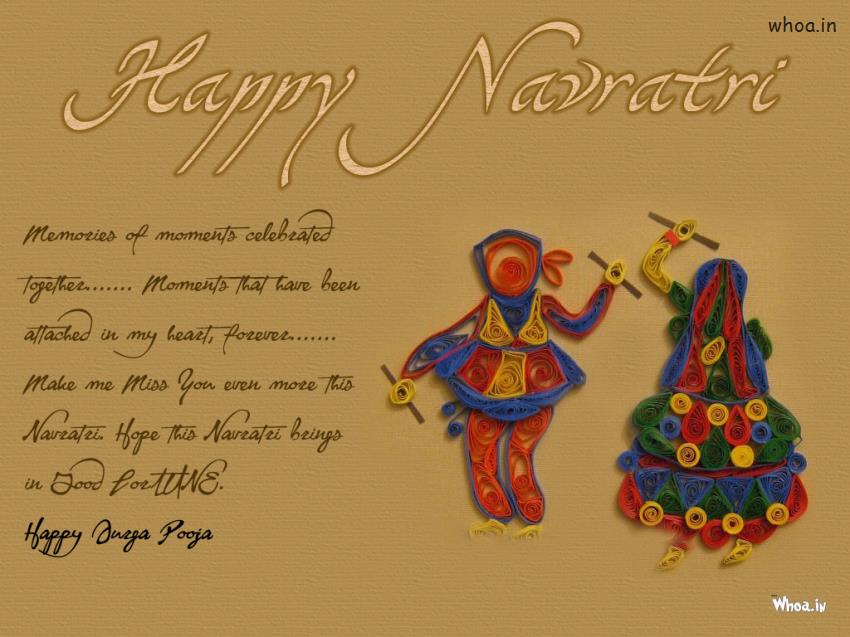 whoa.in
Happy Navratri
Memories of moments celebrated
together....... Moments that have been
attached in my heart, forever.......
Make me Miss You even more this
Navratri. Hope this Navratri brings
in Good ForTUNE.
Happy Durga Pooja
Whoa.in